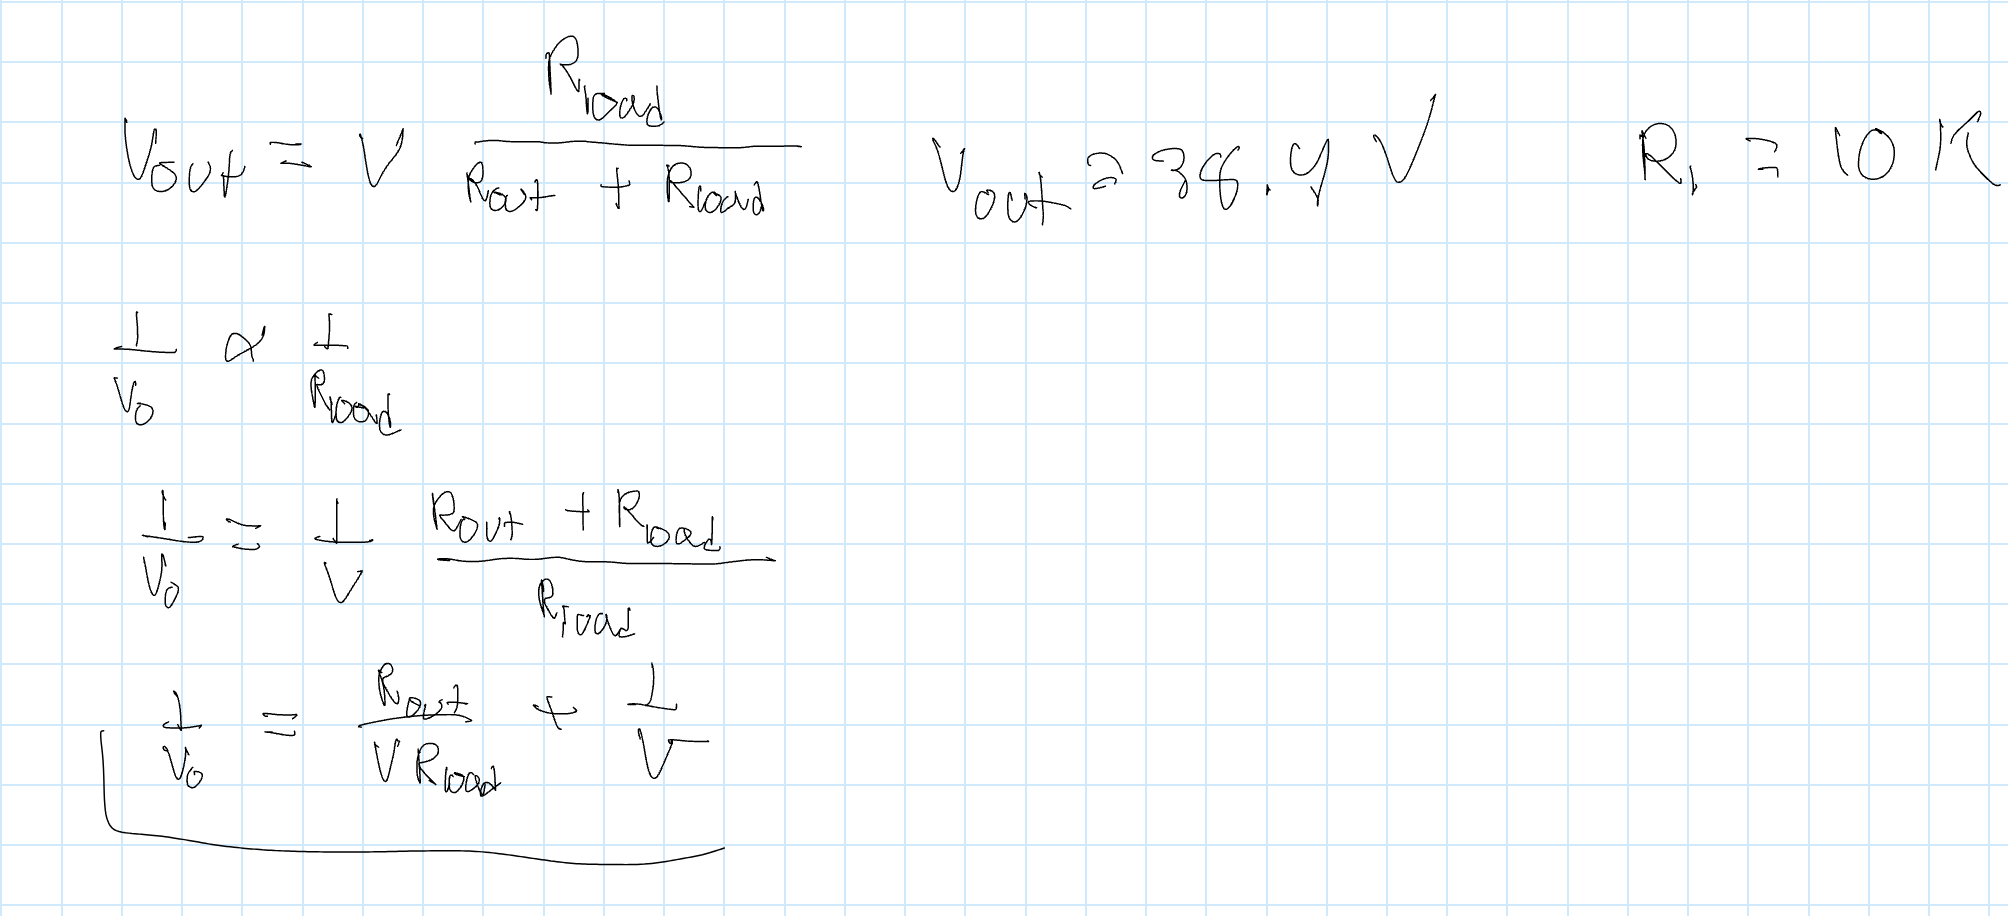 Vout = V Rload / (Rout + Rload)    Vout = 38.4 V    R1 = 10 K
1/Vo ∝ 1/Rload
1/Vo = 1/V (Rout + Rload) / Rload
1/Vo = Rout / (V Rload) + 1/V